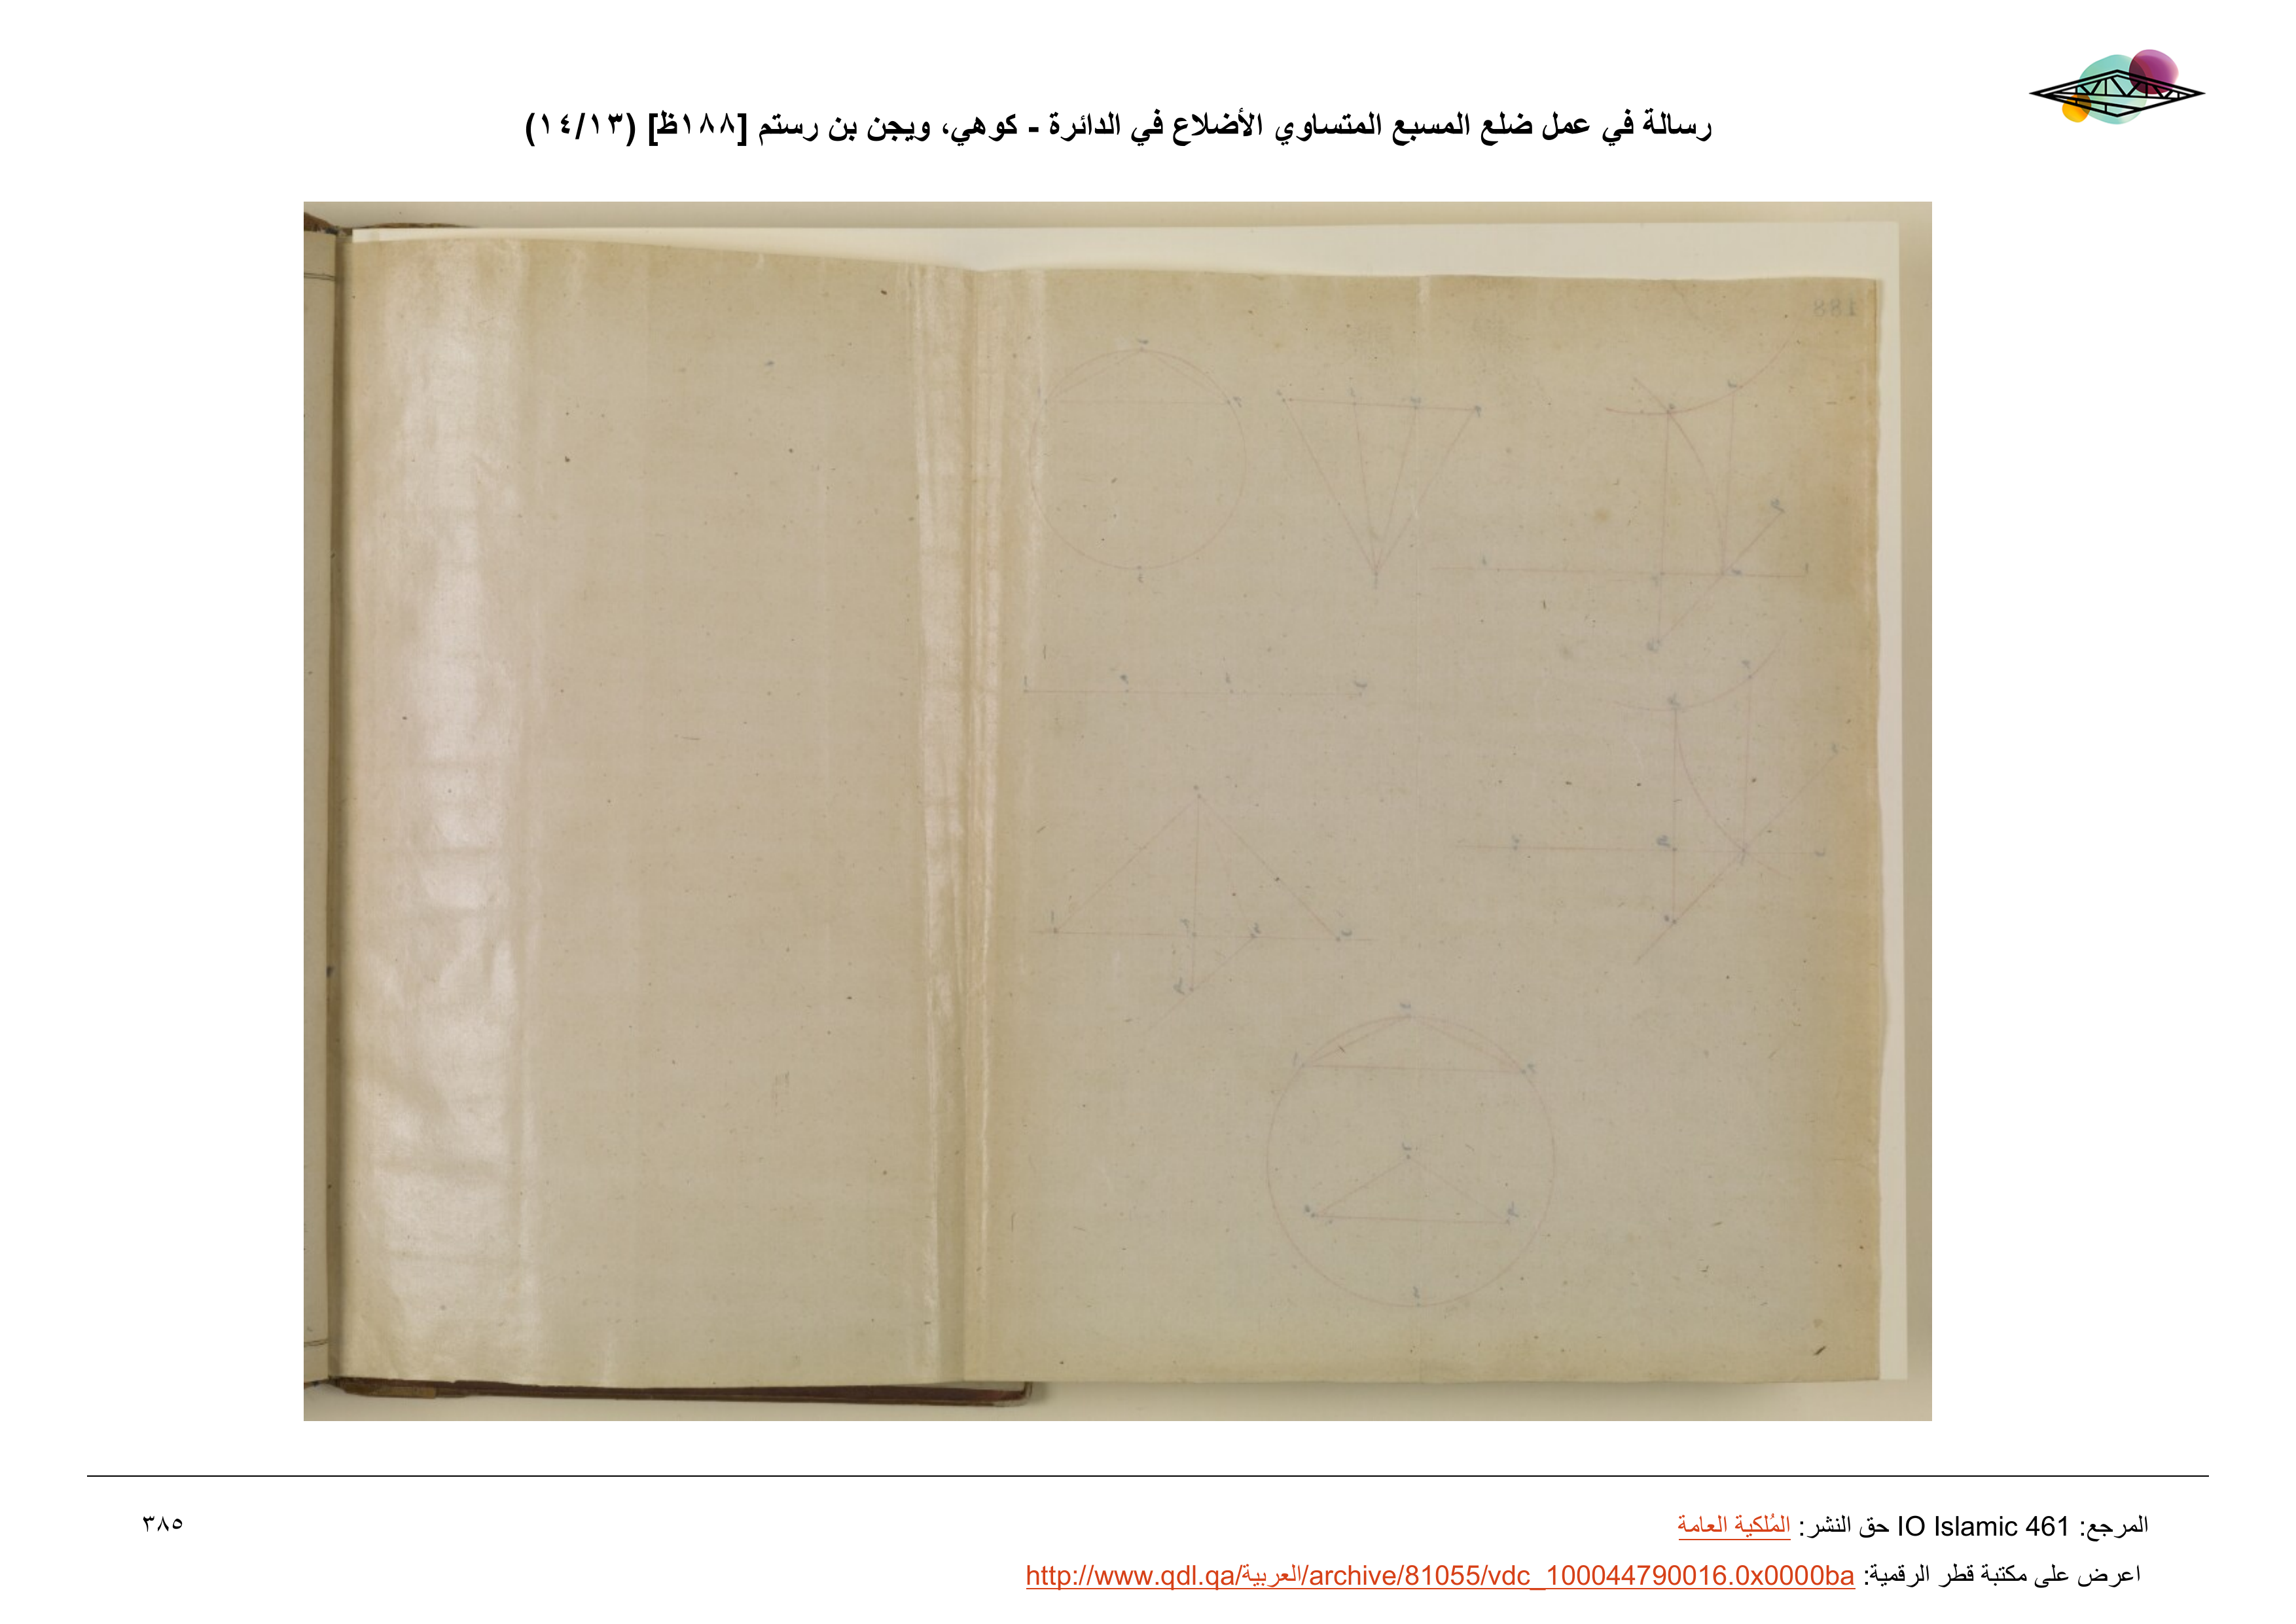 رسالة في عمل ضلع المسبع المتساوي الأضلاع في الدائرة - كوهي، ويجن بن رستم [١٨٨ظ] (١٤/١٣)
188
المرجع: IO Islamic 461 حق النشر: المُلكية العامة
٣٨٥
اعرض على مكتبة قطر الرقمية: http://www.qdl.qa/العربية/archive/81055/vdc_100044790016.0x0000ba